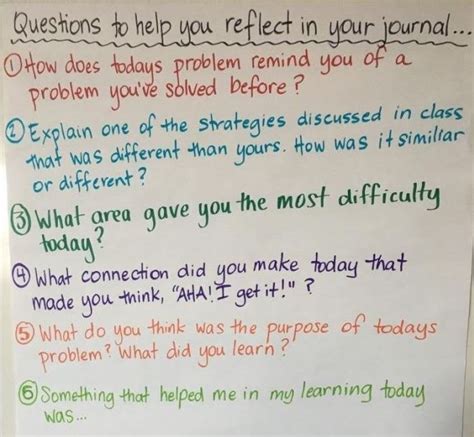 Questions to help you reflect in your journal...
① How does todays problem remind you of a
problem you've solved before?
② Explain one of the strategies discussed in class
that was different than yours. How was it similiar
or different?
③ What area gave you the most difficulty
today?
④ What connection did you make today that
made you think, "AHA! I get it!" ?
⑤ What do you think was the purpose of todays
problem? What did you learn?
⑥ Something that helped me in my learning today
was...